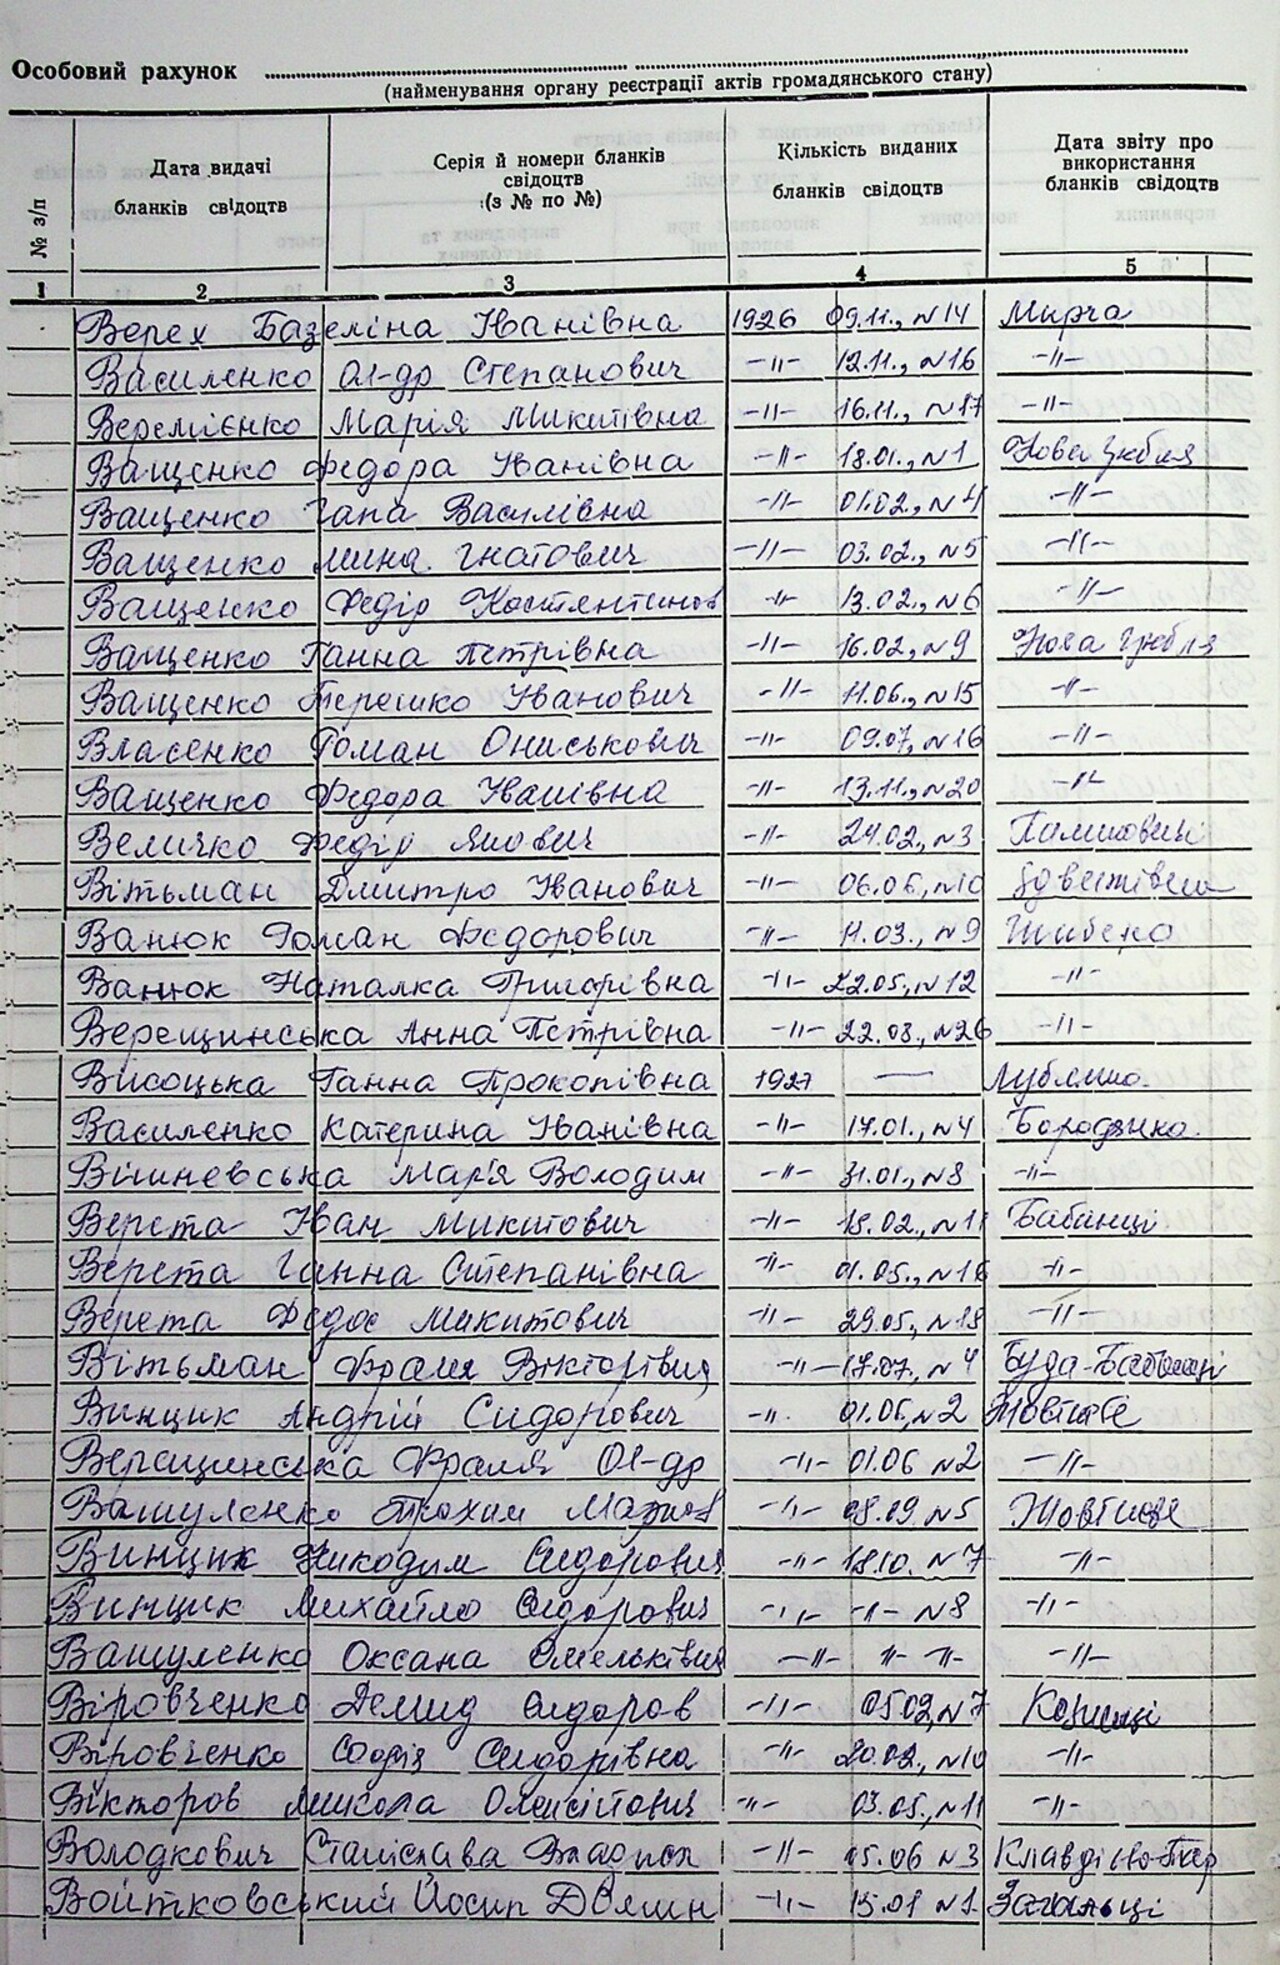 Особовий рахунок
(найменування органу реєстрації актів громадянського стану)
№ з/п Дата видачі бланків свідоцтв Серія й номери бланків свідоцтв (з № по №) Кількість виданих бланків свідоцтв Дата звіту про використання бланків свідоцтв
1 2 3 4 5
Верех Базеліна Іванівна 1926 09.11., N14 Мирча
Василенко Ол-др Степанович -"- 12.11., N16 -"-
Веремієнко Марія Микитівна -"- 16.11., N17 -"-
Ващенко Федора Іванівна -"- 18.01., N1 Нова Гребля
Ващенко Гапа Василівна -"- 01.02., N4 -"-
Ващенко Мина Гнатович -"- 03.02., N5 -"-
Ващенко Федір Костянтинов -"- 13.02., N6 -"-
Ващенко Ганна Петрівна -"- 16.02., N9 Нова Гребля
Ващенко Терешко Іванович -"- 11.06., N15 -"-
Власенко Роман Ониськович -"- 09.07, N16 -"-
Ващенко Федора Іванівна -"- 13.11., N20 -"-
Величко Федір Янович -"- 24.02., N3
Вітьман Дмитро Іванович -"- 06.06., N10
Ванюк Роман Федорович -"- 11.03., N9 Шибене
Ванюк Наталка Григорівна -"- 22.05., N12 -"-
Верещинська Анна Петрівна -"- 22.08., N26 -"-
Висоцька Ганна Прокопівна 1927 —
Василенко Катерина Іванівна -"- 17.01., N4 Бородянка.
Вишневська Мар'я Володим -"- 31.01., N8 -"-
Верета Іван Микитович -"- 18.02., N11 Бабинці
Верета Ганна Степанівна -"- 01.05., N16 -"-
Верета Федос Микитович -"- 29.05., N18 -"-
Вітьман Франя Вікторівна -"- 17.07., N4 Буда-Бабинці
Винцик Андрій Сидорович -"- 01.06, N2 Жовтневе
Верещинська Франя Ол-др -"- 01.06 N2 -"-
Вашуленко Трохим -"- 08.09. N5 Жовтневе
Винцик Никодим Сидорович -"- 18.10. N7 -"-
Винцик Михайло Сидорович -"- -"- N8 -"-
Вашуленко Оксана Омельківна -"- -"- -"- -"-
Віровченко Демид Сидоров -"- 05.02, N7 Козинці
Віровченко Софія Сидорівна -"- 20.02., N10 -"-
Вікторов Микола Олексійович -"- 03.05., N11 -"-
Володкович Станіслава -"- 15.06 N3 Клавдієво-Тар
Войтковський Йосип Доминік -"- 15.01 N1. Загальці